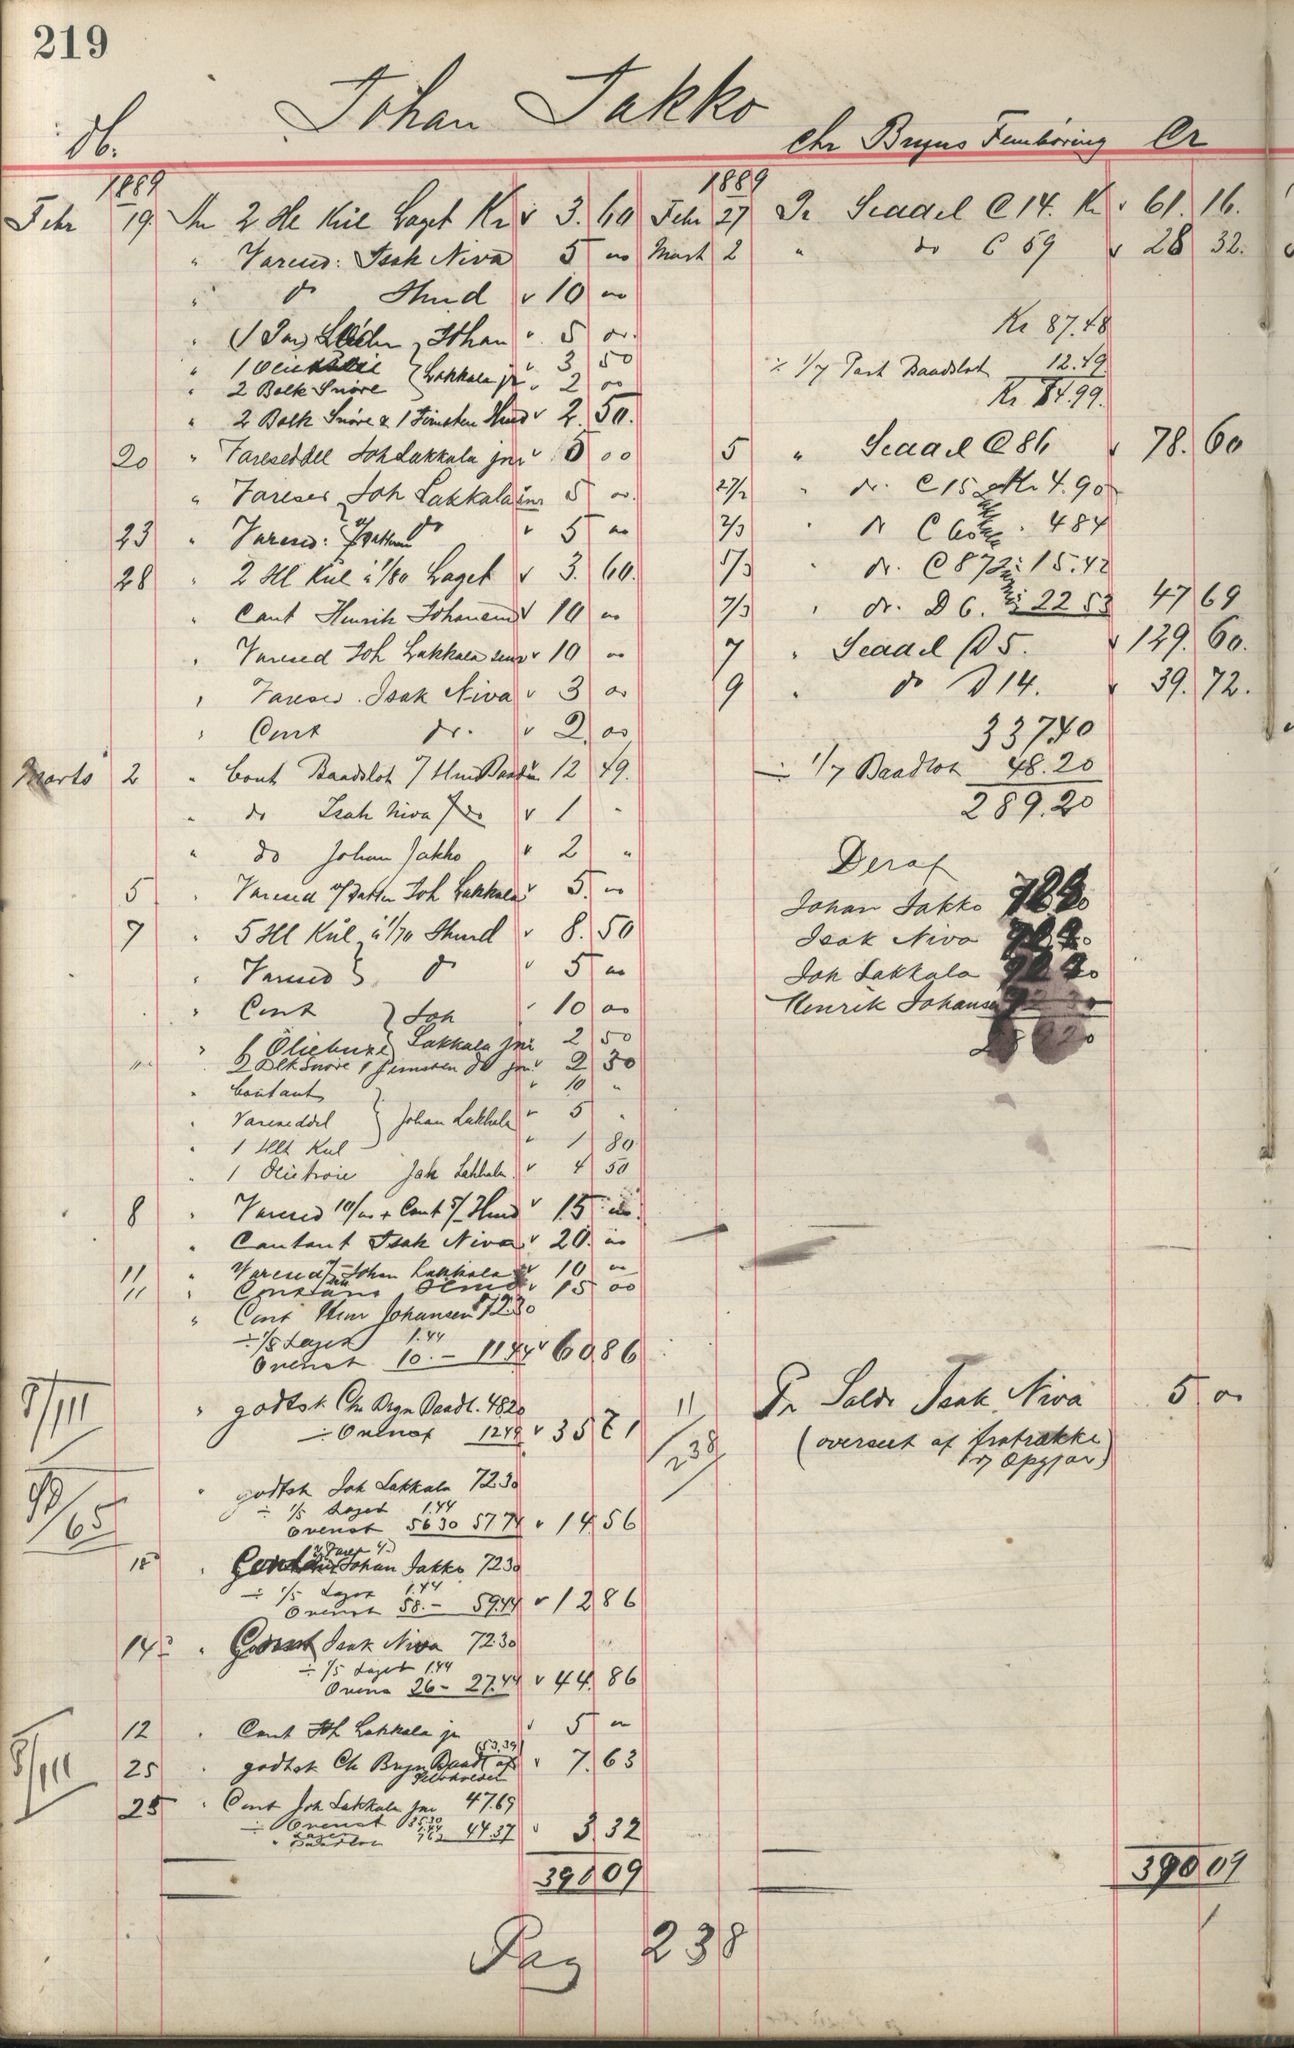 219
Johan Jakko
Db.
Chr Bryns Fembøring Cr
1889
Febr 19. An 2 Hl Kul Laget Kr 3. 60
" Varesed: Isak Niva 5 00
" do Hmd 10 00
Johan 5 00
3 50
" 2 Bolk Snøre Lakkala jr 2 00
" 2 Bolk Snøre & 1 Jernsten Hmd 2. 50.
20 " Vareseddel Joh Lakkala jnr 5 00
" Varesed Joh Lakkala snr 5 00
23 " Varesed: do 5 00
28 " 2 Hl Kul à 1/80 Laget 3. 60.
" Cant Henrik Johansen 10 00
" Varesed Joh Lakkala senr 10 00
" Varesed. Isak Niva 3 00
" Cont do. 2. 00
Marts 2 " Cont Baadslot 12 49.
" do Isak Niva 1 "
" do Johan Jakko 2 "
5 " Varesed Joh Lakkala 5. 00
7 " 5 Hl Kul à 1/70 Hmd 8. 50
" Varesed do 5 00
" Cont Joh 10 00
" 1 Öliebuxe Lakkala jnr 2 50
2 Blk Snøre 1 Jernsten do jnr 2 30
" Contant 10 "
" Vareseddel Johan Lakkala 5 "
" 1 Hlt Kul 1 80
" 1 Olietroie Joh Lakkala 4 50
8 " Varesed 10/00 + Cont 5/- Hmd 15 00
" Contant Isak Niva 20. 00
11 " Varesed Johan Lakkala 10 00
11 " 15 00
" Cont Henr Johansen 72.30
÷ 1/5 Laget 1.44
Ovenst 10.- 11.44 60 86
8/111
" godtsk Chr Bryn Baadl. 48.20
÷ Ovenst 12.49 35 71
90/65
" godtsk Joh Lakkala 72.30
÷ 1/5 Laget 1.44
Ovenst 56.30 57.74 14 56
18 " Johan Jakko 72.30
÷ 1/5 Laget 1.44
Ovenst 58.- 59.44 12 86
14 " Isak Niva 72.30
÷ 1/5 Laget 1.44
Ovens 26- 27.44 44. 86
12 " Cont Joh Lakkala jr 5 00
8/111
25 " godtsk Ch Bryn Baadl af (53,39) 7. 63
25 " Cont Joh Lakkala jnr 47.69
÷ Ovenst 35.30
Laget 1.44
" Baadslot 7.62 44.37 3 32
390 09
1889
Febr 27 Pr Seddel C 14. Kr 61. 16.
Mart 2 " do C 59 28 32.
Kr 87.48
÷ 1/7 Part Baadslot 12.49
Kr 74.99.
5 " Seddel C 86 78. 60
27/2 " do. C 15 Kr 4.90
2/3 " do C 60 " 4 84
5/3 " do. C 87 15.42
7/3 " do. D 6. 22 53 47 69
7 " Seddel D 5. 129. 60.
9 " do D 14. 39. 72.
337.40
÷ 1/7 Baadlot 48.20
289.20
Deraf
Johan Jakko
Isak Niva
Joh Lakkala
Henrik Johansen
11/238 Pr Saldo Isak Niva 5 00
(overseet at fratrække
v/ Opgjør)
390 09
Pag 238